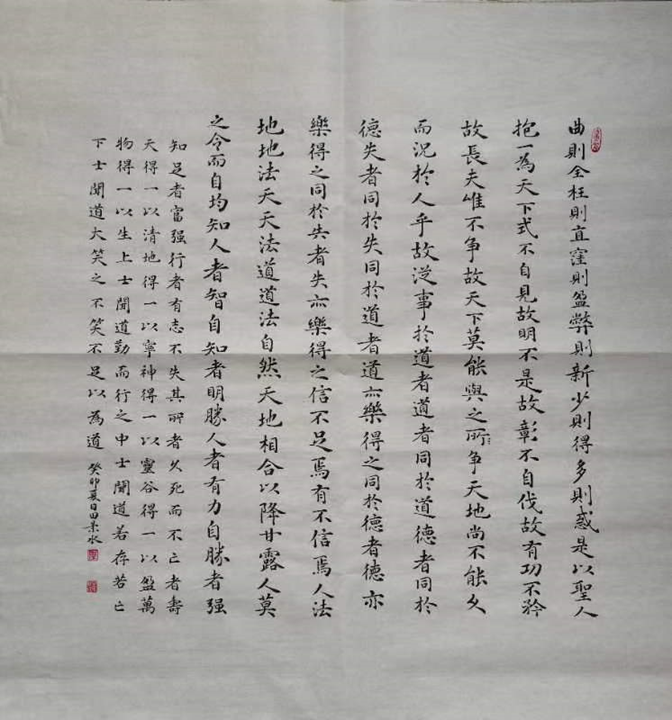 曲則全枉則直窪則盈弊則新少則得多則惑是以聖人
抱一為天下式不自見故明不是故彰不自伐故有功不矜
故長夫唯不争故天下莫能與之所争天地尚不能久
而況於人乎故從事於道者道者同於道德者同於
德失者同於失同於道者道亦樂得之同於德者德亦
樂得之同於失者失亦樂得之信不足焉有不信焉人法
地地法天天法道道法自然天地相合以降甘露人莫
之令而自均知人者智自知者明勝人者有力自勝者强
知足者富强行者有志不失其所者久死而不亡者壽
天得一以清地得一以寧神得一以靈谷得一以盈萬
物得一以生上士聞道勤而行之中士聞道若存若亡
下士聞道大笑之不笑不足以為道 癸卯夏日田景水